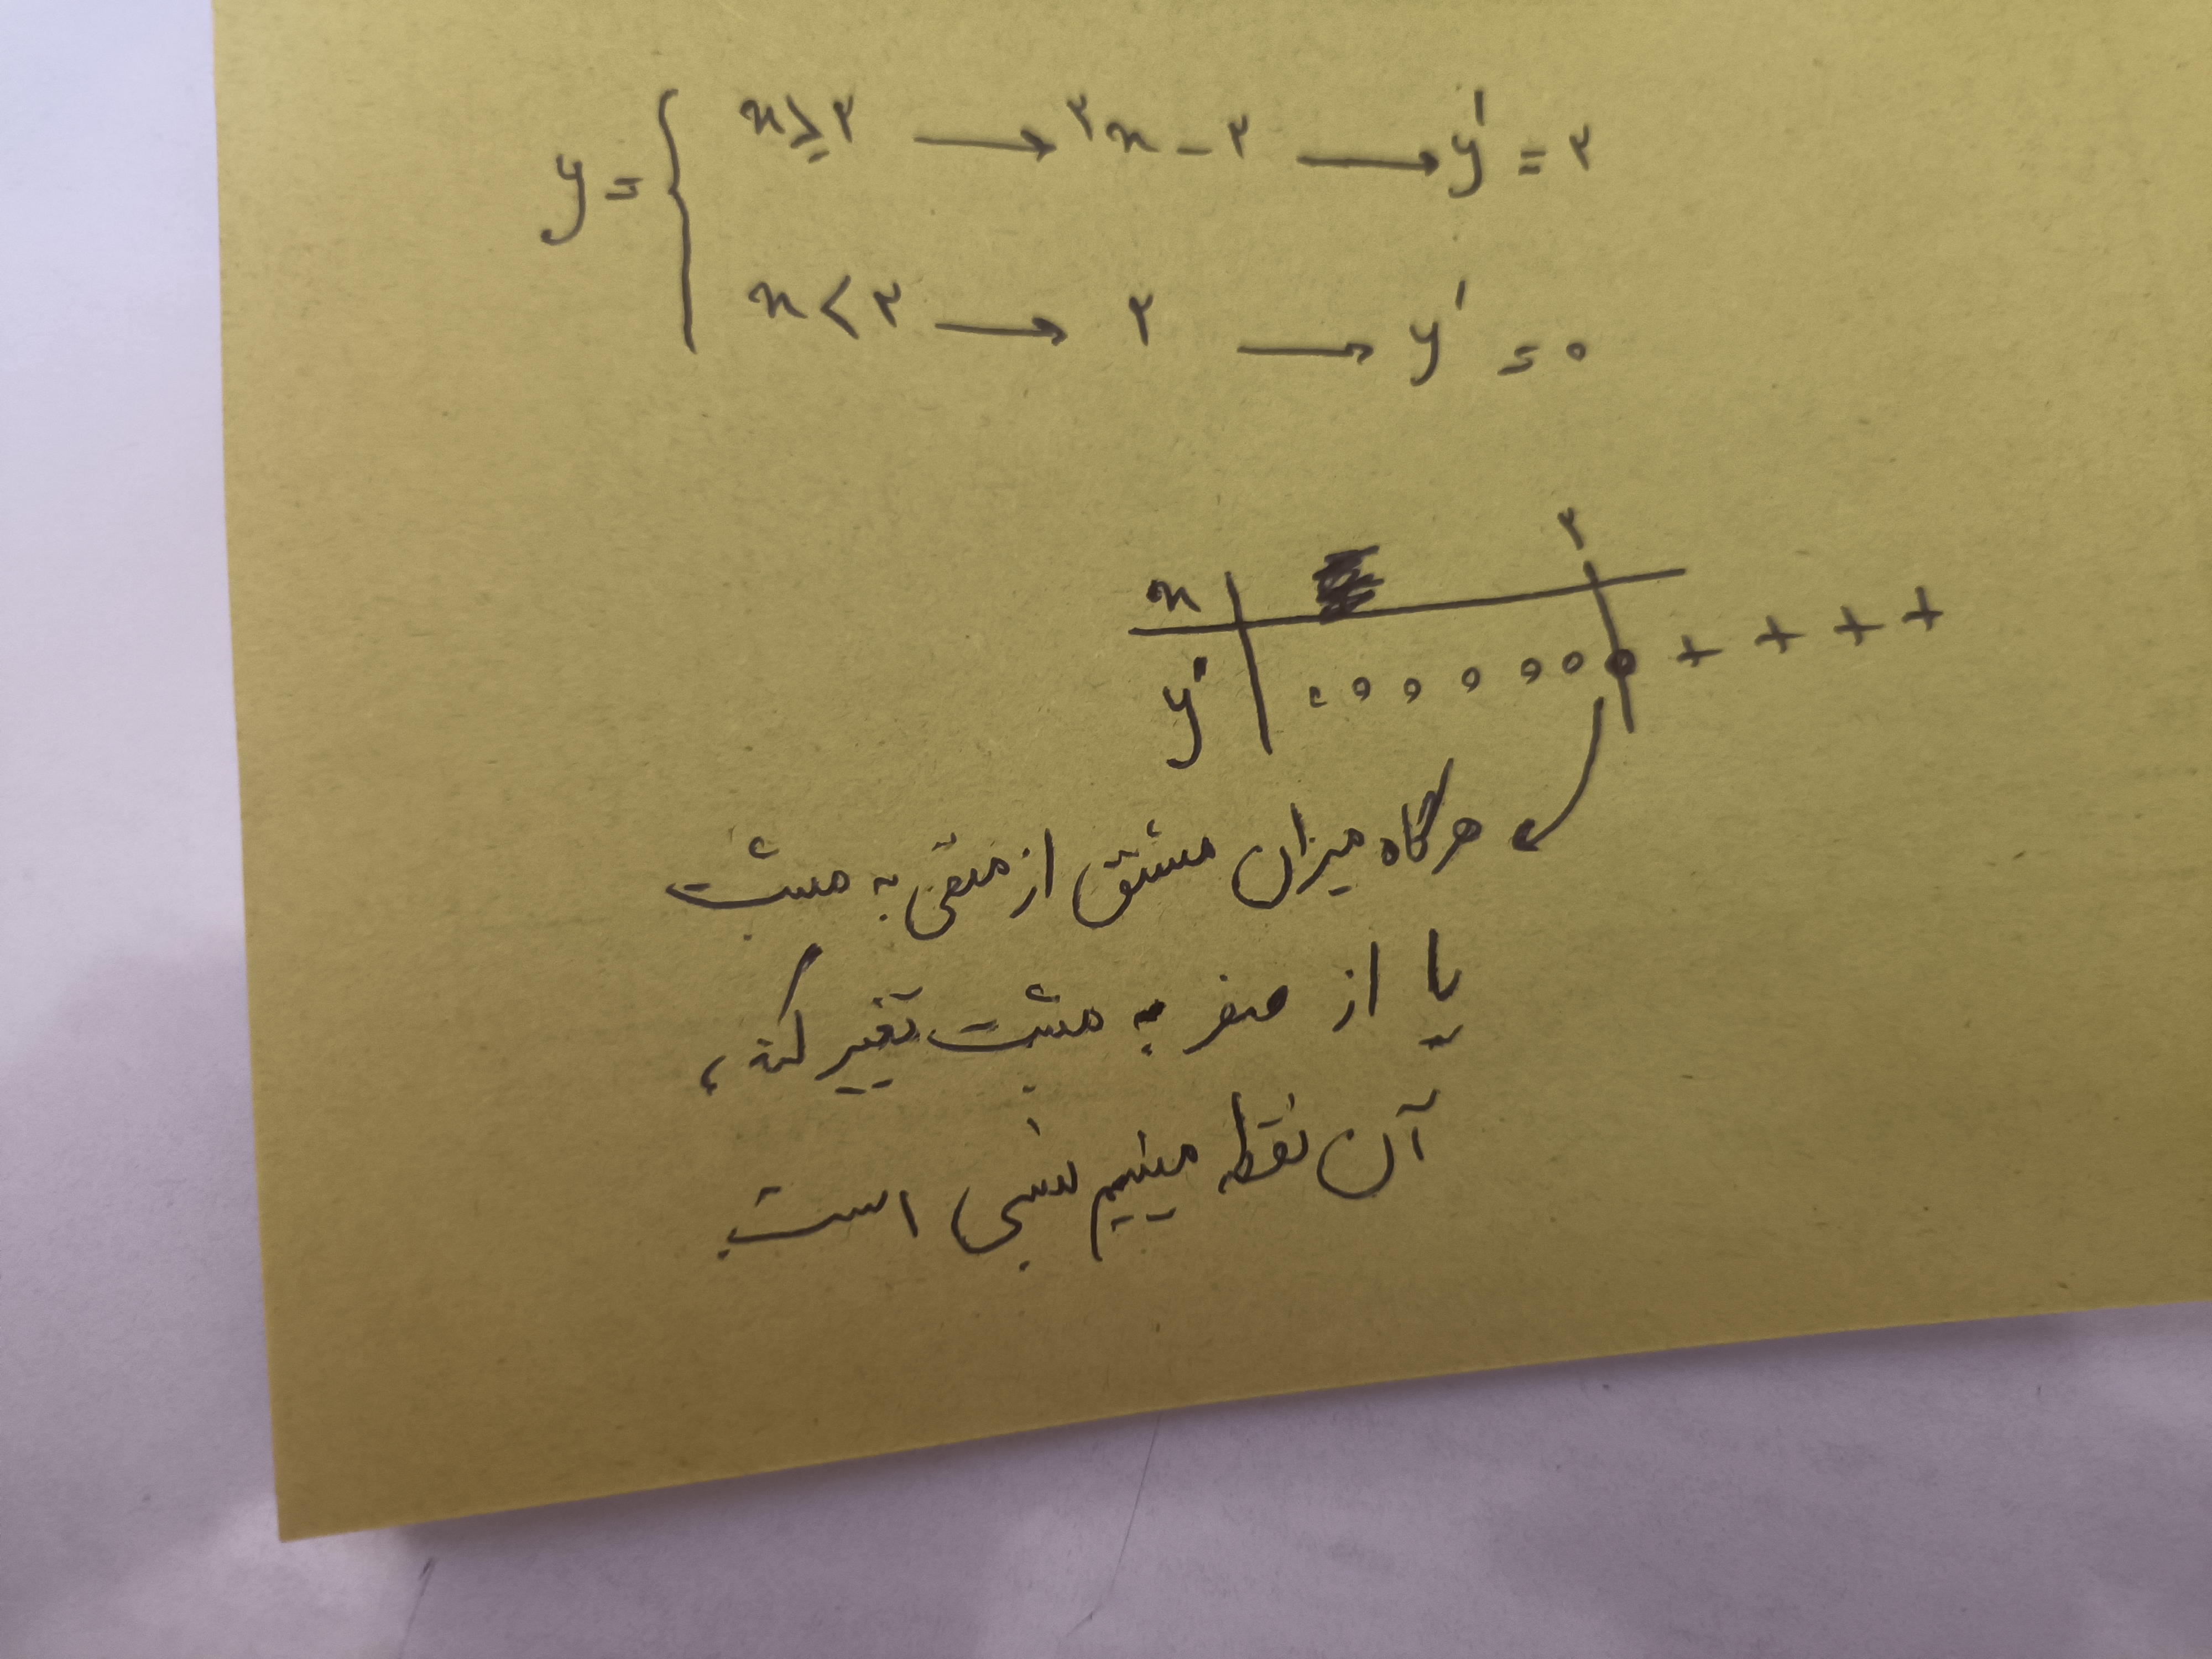 y = { x ≥ ۲ → ۲x - ۲ → y' = ۲
x < ۲ → ۲ → y' = ۰
x ۲
y' ۰ ۰ ۰ ۰ ۰ ۰ ۰ + + + +
هرگاه میزان مشتق از منفی به مثبت
یا از صفر به مثبت تغییر کند،
آن نقطه مینیمم نسبی است